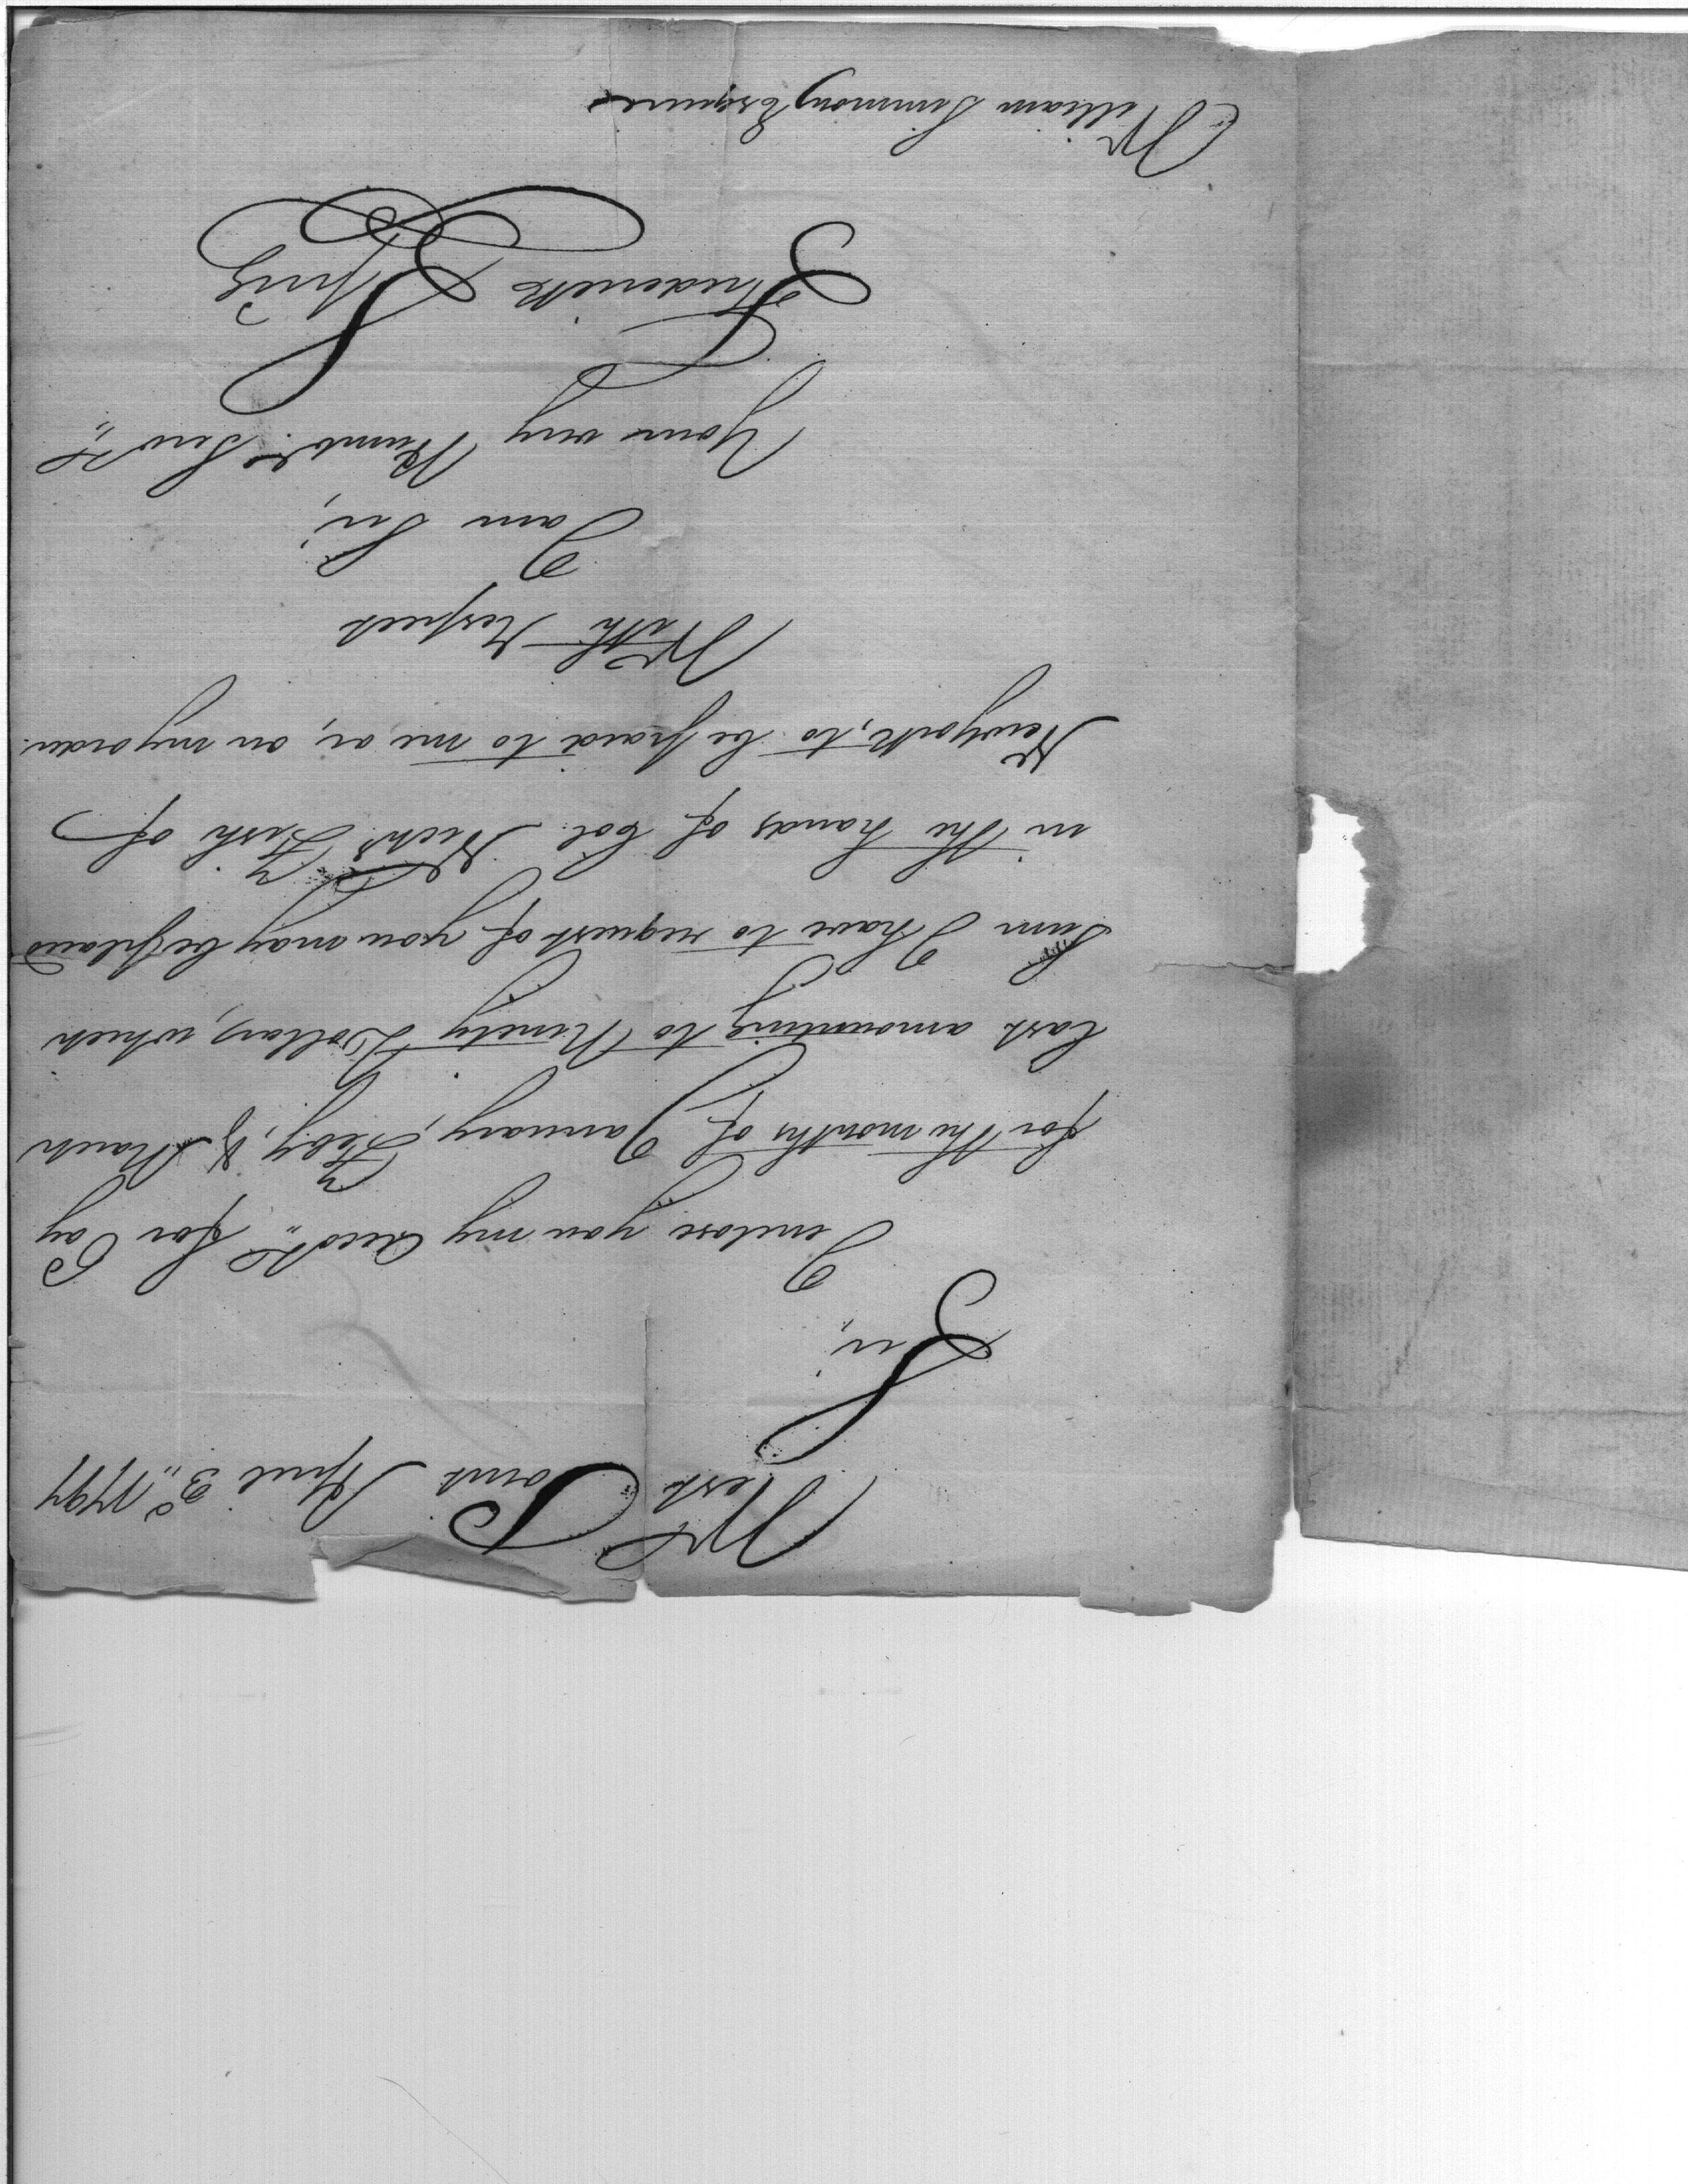 West Point April 3d,, 1797
Sir,,
I enclose you my Acco.t,, for Pay
for the months of January, Feby, & March
last amounting to Ninety Dollars, which
Sum I have to request of you may be placed
in the hands of Col. Nich.s Fish of
Newyork, to be paid to me or, on my order.
With Respect
I am Sir,
Your very Humb.le Serv.t,,
Frederick
William Simmons Esquire